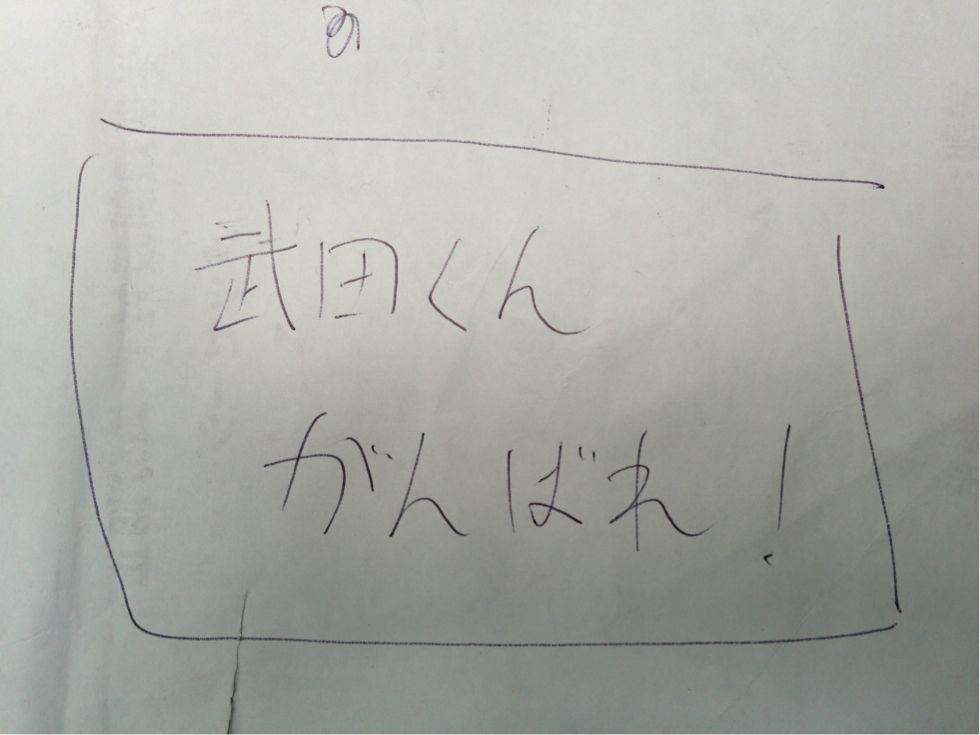 武田くん
がんばれ!